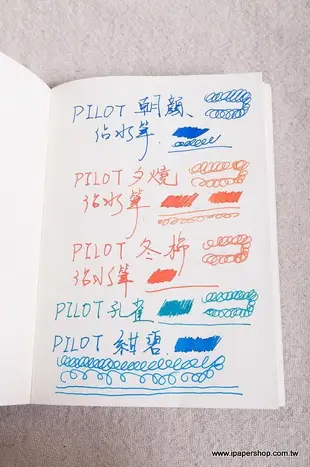 PILOT 朝顔、
沾水筆.
PILOT 夕燒
沾水筆.
PILOT 冬柿
沾水筆
PILOT 孔雀.
PILOT 紺碧.
www.ipapershop.com.tw